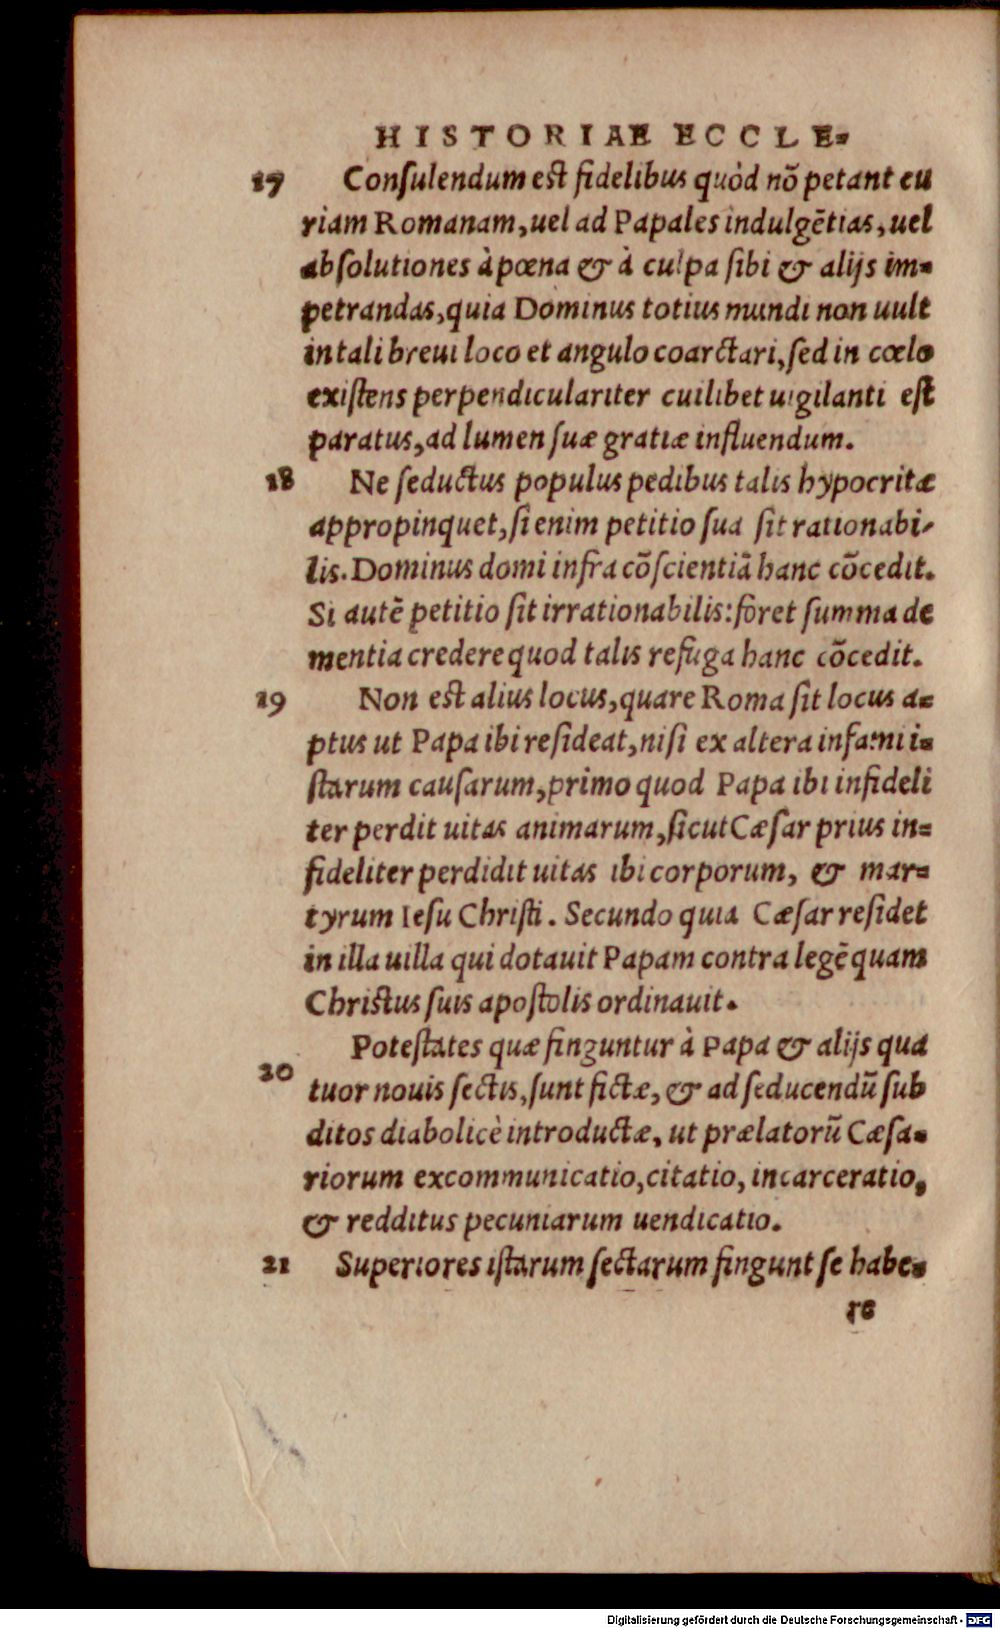 HISTORIAE ECCLE-
17 Consulendum est fidelibus quòd nõ petant cu
riam Romanam, uel ad Papales indulgẽtias, uel
absolutiones à pœna & à culpa sibi & alijs im-
petrandas, quia Dominus totius mundi non uult
in tali breui loco et angulo coarctari, sed in cœlo
existens perpendiculariter cuilibet uigilanti est
paratus, ad lumen suæ gratiæ influendum.
18 Ne seductus populus pedibus talis hypocritæ
appropinquet, si enim petitio sua sit rationabi-
lis. Dominus domi infra cõscientiã hanc cõcedit.
Si autẽ petitio sit irrationabilis: foret summa de
mentia credere quod talis refuga hanc cõcedit.
19 Non est alius locus, quare Roma sit locus a-
ptus ut Papa ibi resideat, nisi ex altera infami i-
starum causarum, primo quod Papa ibi infideli
ter perdit uitas animarum, sicut Cæsar prius in-
fideliter perdidit uitas ibi corporum, & mar-
tyrum Iesu Christi. Secundo quia Cæsar residet
in illa uilla qui dotauit Papam contra legẽ quam
Christus suis apostolis ordinauit.
20 Potestates quæ finguntur à Papa & alijs qua
tuor nouis sectis, sunt fictæ, & ad seducendũ sub
ditos diabolicè introductæ, ut prælatorũ Cæsa-
riorum excommunicatio, citatio, incarceratio,
& redditus pecuniarum uendicatio.
21 Superiores istarum sectarum fingunt se habe-
re
Digitalisierung gefördert durch die Deutsche Forschungsgemeinschaft - DFG